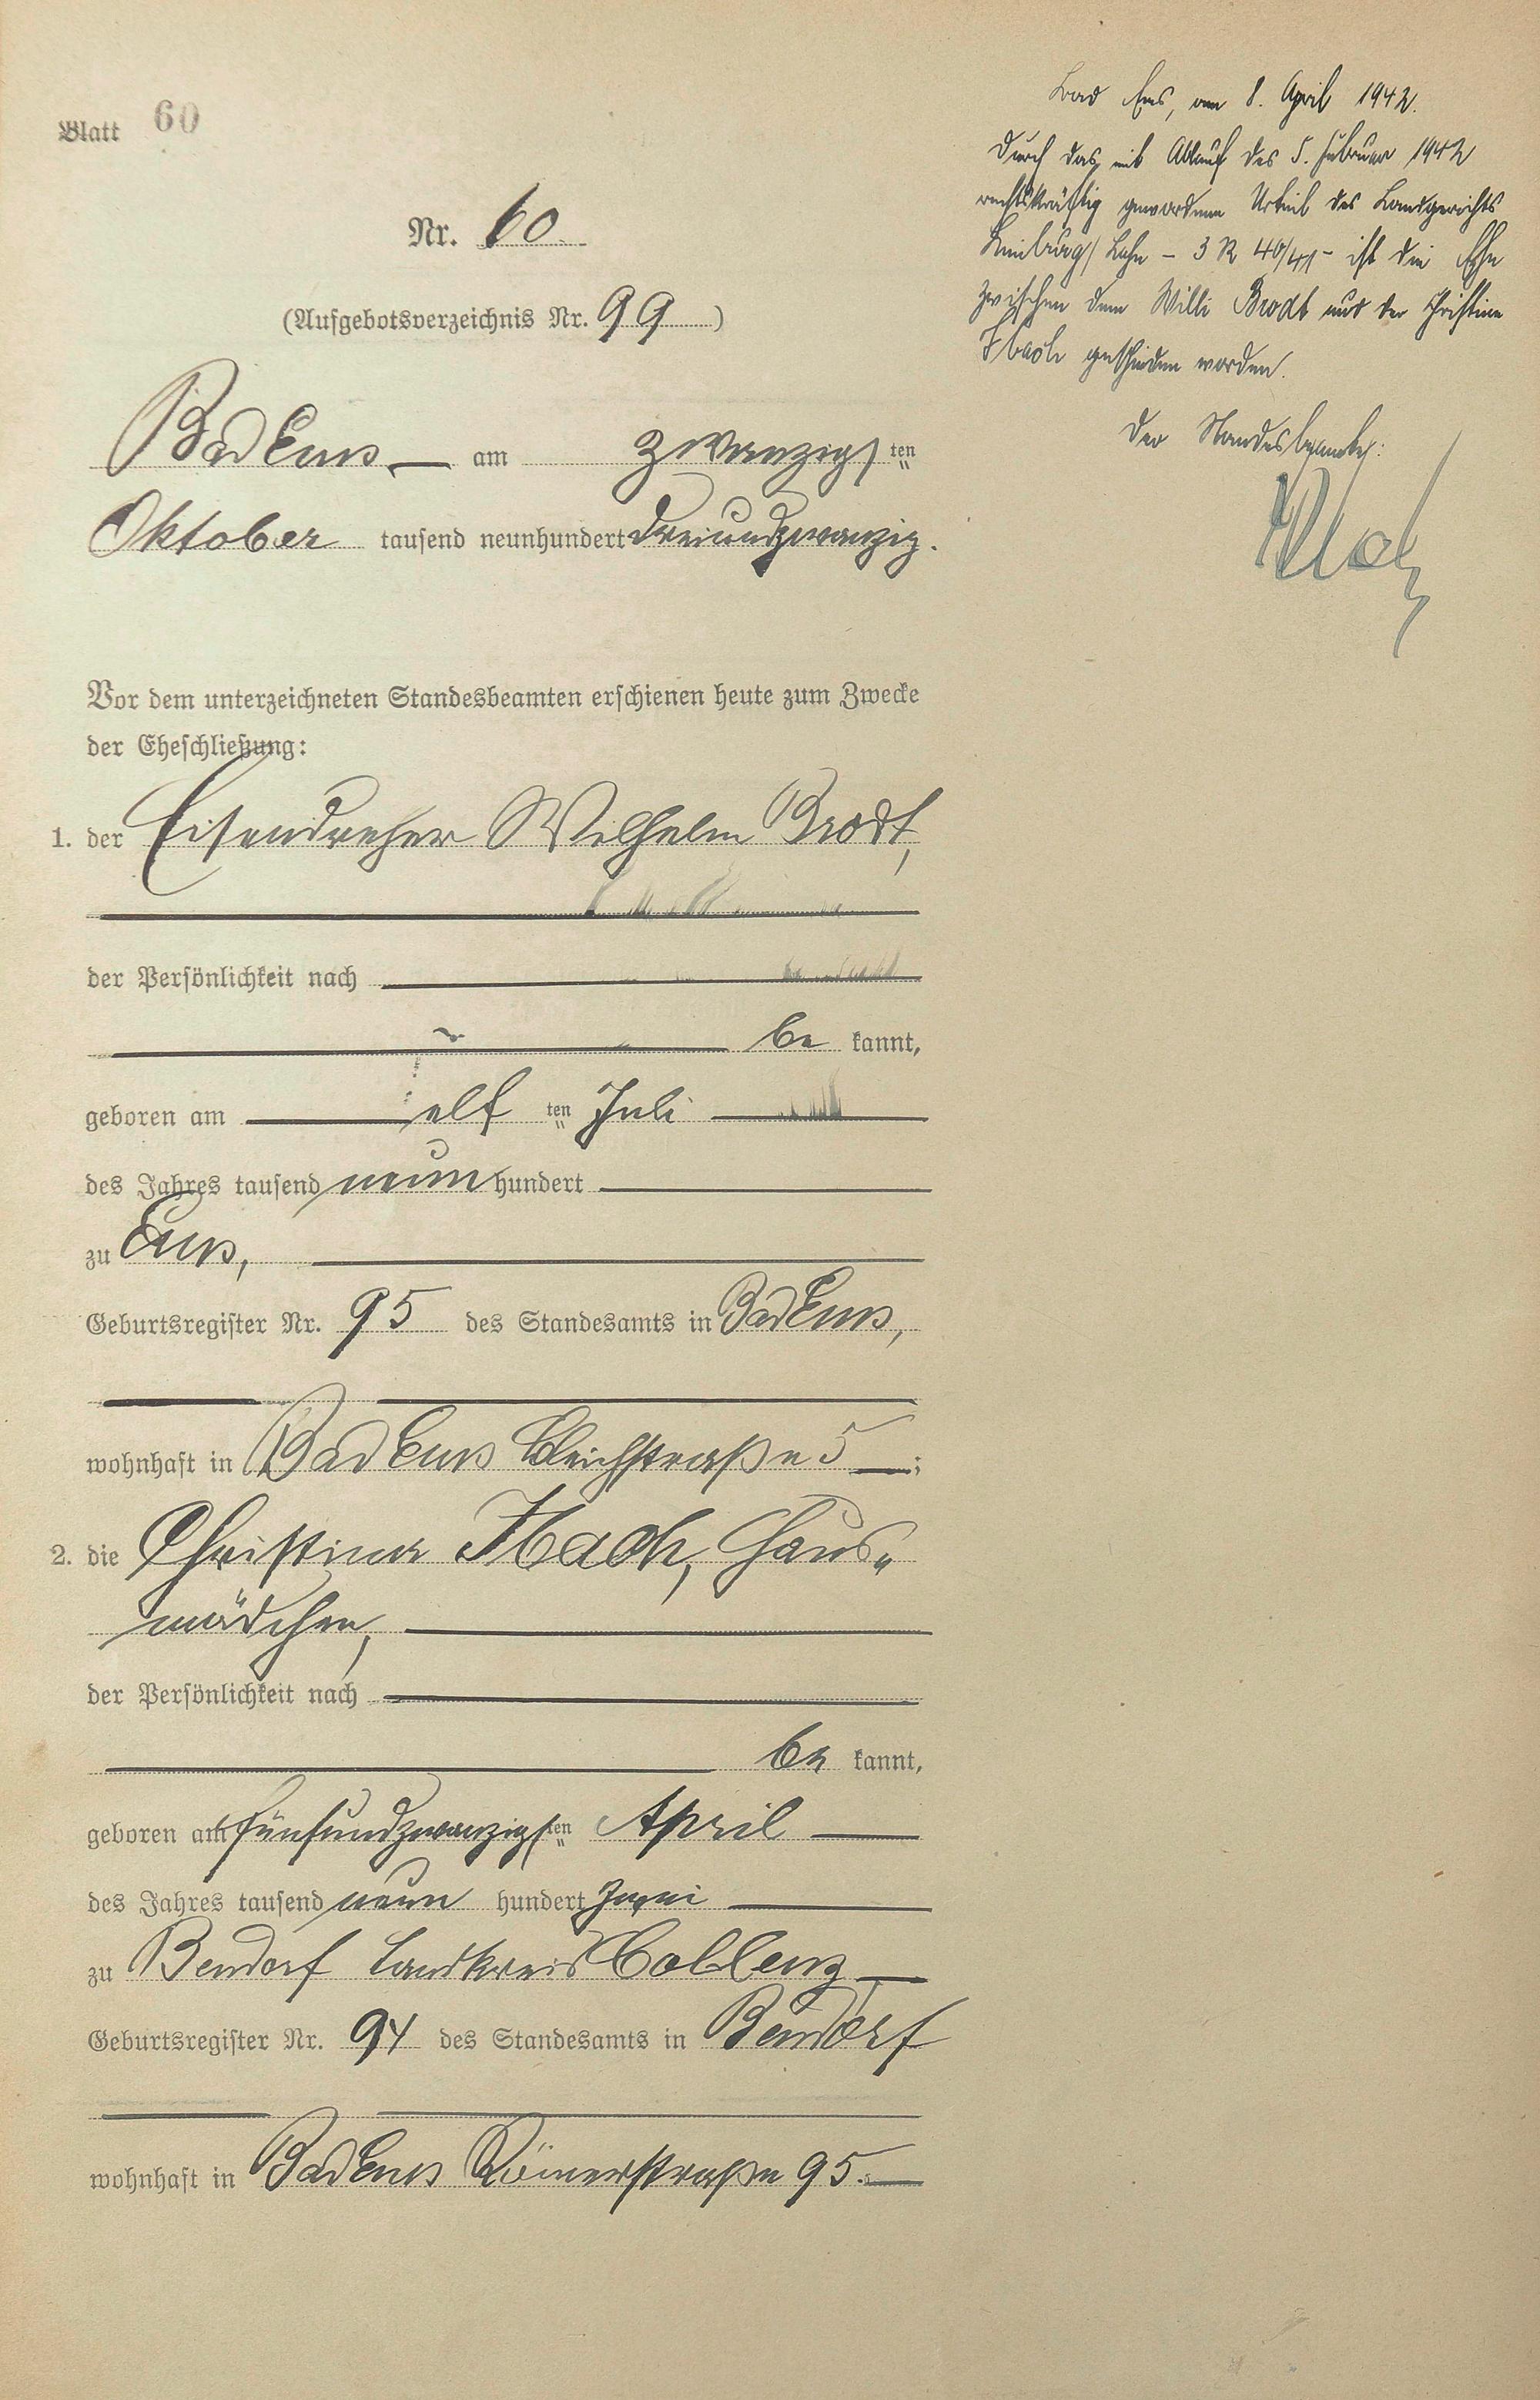 Blatt 60
Nr. 60
(Aufgebotsverzeichnis Nr. 99)
Bad Ems am zwanzigsten
Oktober tausend neunhundert dreiundzwanzig.
Vor dem unterzeichneten Standesbeamten erschienen heute zum Zwecke
der Eheschließung:
1. der Eisendreher Wilhelm Brodt,
der Persönlichkeit nach
be kannt,
geboren am elf ten Juli
des Jahres tausend neun hundert
zu Ems,
Geburtsregister Nr. 95 des Standesamts in Bad Ems,
wohnhaft in Bad Ems Bleichstraße 5;
2. die Christina Ibach, Haus-
mädchen,
der Persönlichkeit nach
be kannt,
geboren am fünfundzwanzigsten April
des Jahres tausend neun hundert zwei
zu Bendorf Landkreis Coblenz
Geburtsregister Nr. 94 des Standesamts in Bendorf
wohnhaft in Bad Ems Römerstraße 95.
Bad Ems, am 8. April 1942.
Durch das, mit Ablauf des 5. Februar 1942
rechtskräftig gewordene Urteil des Landgerichts
Limburg/Lahn - 3 R 40/41 - ist die Ehe
zwischen dem Willi Brodt und der Christine
Ibach geschieden worden.
Der Standesbeamte: